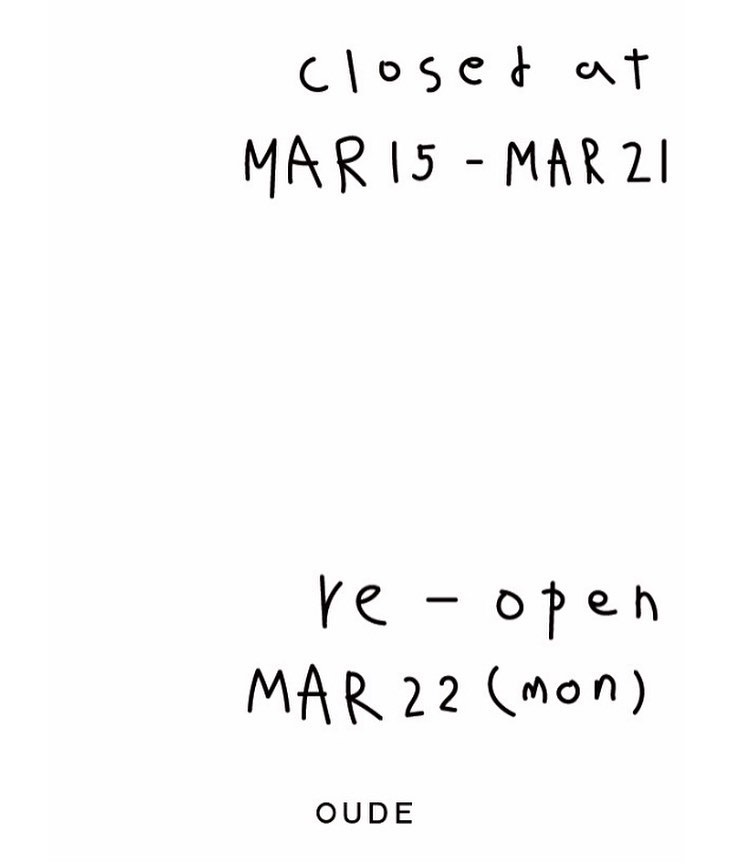 closed at
MAR 15 - MAR 21
re - open
MAR 22 (mon)
OUDE